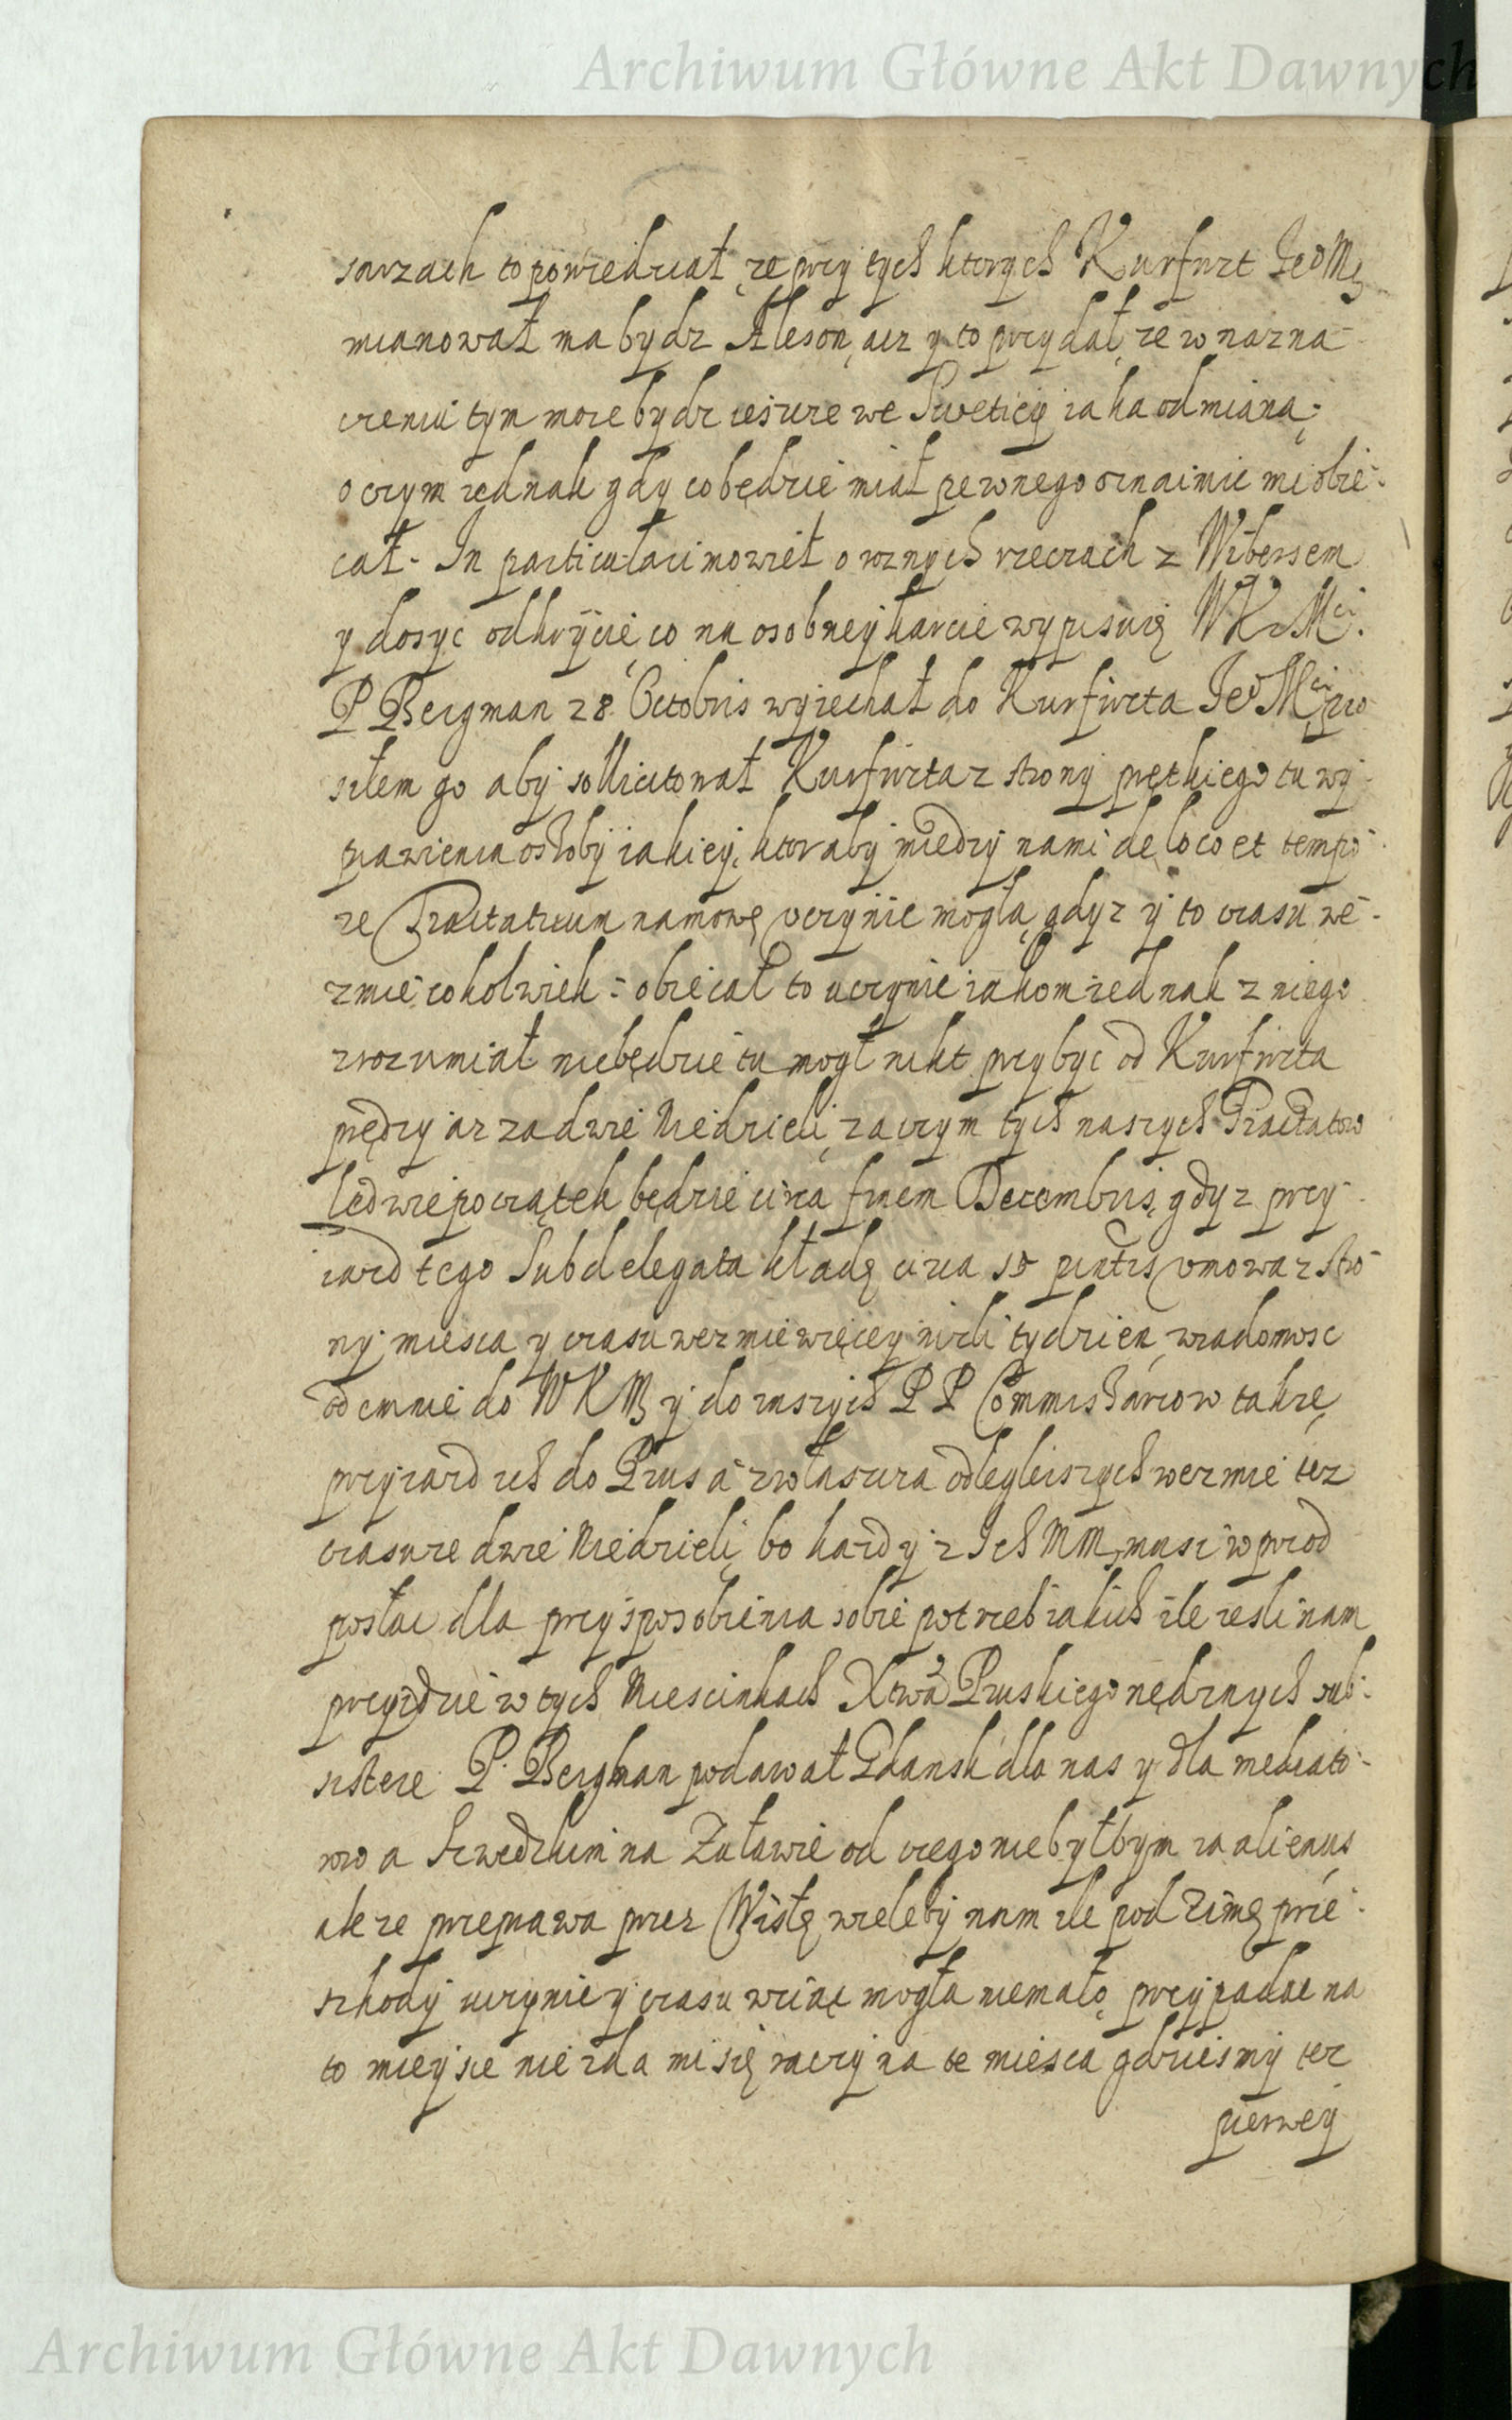 Archiwum Główne Akt Dawnych
sarzach to powiedział, ze przy tych ktorych Kurfirzt Jeo Mę
mianował ma bydz Aleson, acz y to przydał, ze w nazna-
czeniu tym moze bydz ieszcze we Swetiey iaka odmiana;
o czym iednak gdy co będzie miał pewnego oznaimic mi obie-
cał. In particulari mowieł o roznych rzeczach z Wibersem
y dosyc odkrycie, co na osobney karcie wypisuię WKr Mci.
P Bergman 28 Octobris wyiechał do Kurfirzta Jeo Mci, pro
siłem go aby sollicitował Kurfirzta z strony prętkiego tu wy-
prawienia osłoby iakiey, ktoraby miedzy nami de loco et tempo-
re Tractatuum namowę uczynic mogła, gdyz y to czasu we-
zmie cokolwiek: obiecał to uczynic iakom iednak z niego
zrozumiał niebędzie tu mogł nikt przybyc od Kurfirzta
prędzy az za dwie Niedzieli, zaczym tych naszych Tractatow
ledwie początek będzie circa finem Decembris, gdyz przy-
iazd tego Subdelegata kładę circa 15 pntis umowa z stro-
ny miesca y czasu wezmie więcey nizli tydzien, wiadomosc
odemnie do WKMę y do inszych PP Commissarzow takze,
przyiazd ich do Prus a zwłaszcza odlegleiszych wezmie tez
czasu ze dwie Niedzieli, bo kazdy z Ich MM, musi wprzod
posłac dla przysposobienia sobie potrzeb iakich ile iesli nam
przyidzie w tych Miescinkach Xtwa Pruskiego nędznych sub-
sistere. P. Bergman podawał Gdansk dla nas y dla mediato-
row a Szwedkim na Zuławie od czego niebyłbym ia alienus,
ale ze przeprawa przez Wisłę wieleby nam ile pod Zimę prze-
szkody uczynic y czasu wziąc mogła niemało, przypadac na
to mieysce nie zda mi się raczy na te miesca gdziesmy tez
pierwey
Archiwum Główne Akt Dawnych